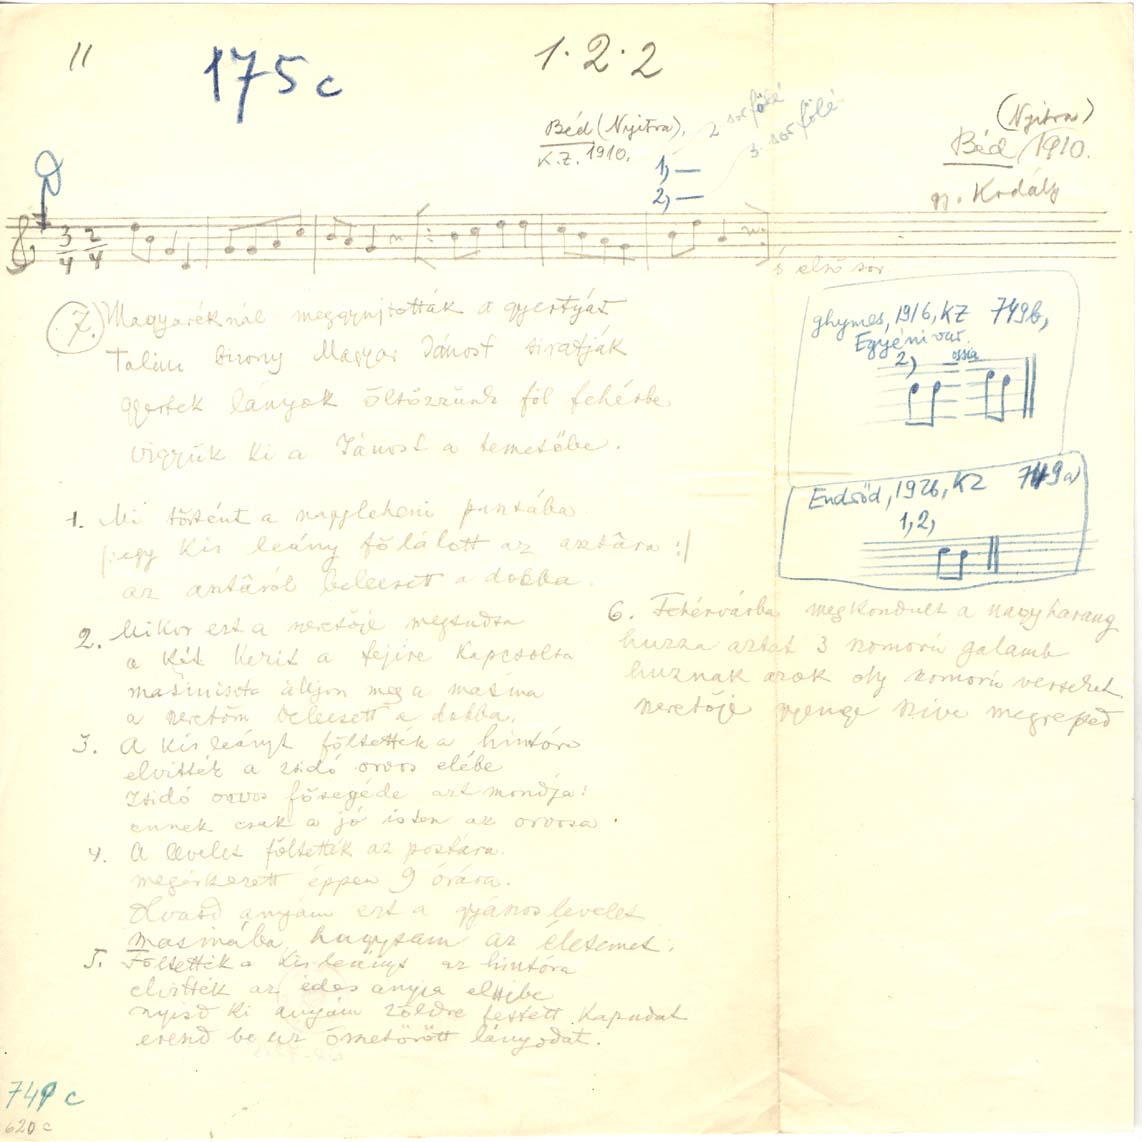 11
175c
1·2·2
Béd (Nyitra),
K.Z. 1910.
1,) — 2 sor fölé
2,) — 3. sor fölé
(Nyitra)
Béd 1910.
gy. Kodály
3/4 2/4
első sor
7. Magyaréknál meggyujtották a gyertyát
Talán bizony Magyar Jánost siratják
gyertek lányok öltözzünk föl fehérbe
vigyük ki a Jánost a temetőbe.
ghymes, 1916, KZ 749b,
Egyéni var.
2,) ossia
Endrőd, 1926, KZ 749a
1,2,
1. Mi történt a nagyleheni pusztába
|: egy kis leány fölálott az asztâra :|
az asztâról beleesett a dobba.
2. Mikor ezt a szeretője megtudta
a két kezit a fejire kapcsolta
masiniszta álljon meg a masina
a szeretőm beleesett a dobba.
3. A kis leányt föltették a hintóra
elvitték a zsidó orvos elébe
Zsidó orvos fősegéde azt mondja:
ennek csak a jó isten az orvosa.
4. A levelet föltették az postára.
megérkezett éppen 9 órára.
Olvasd anyám ezt a gyászos levelet
masinába hagytam az életemet.
5. Föltették a kis leányt az hintóra
elvitték az édes anyja elejibe
nyisd ki anyám zöldre festett kapudat
ereszd be az őszetörött lányodat.
6. Fehérvárba megkondult a nagyharang
huzza aztat 3 szomorú galamb
huznak azok oly szomorú verseket
szeretője gyenge szíve megreped
749 c
620 c